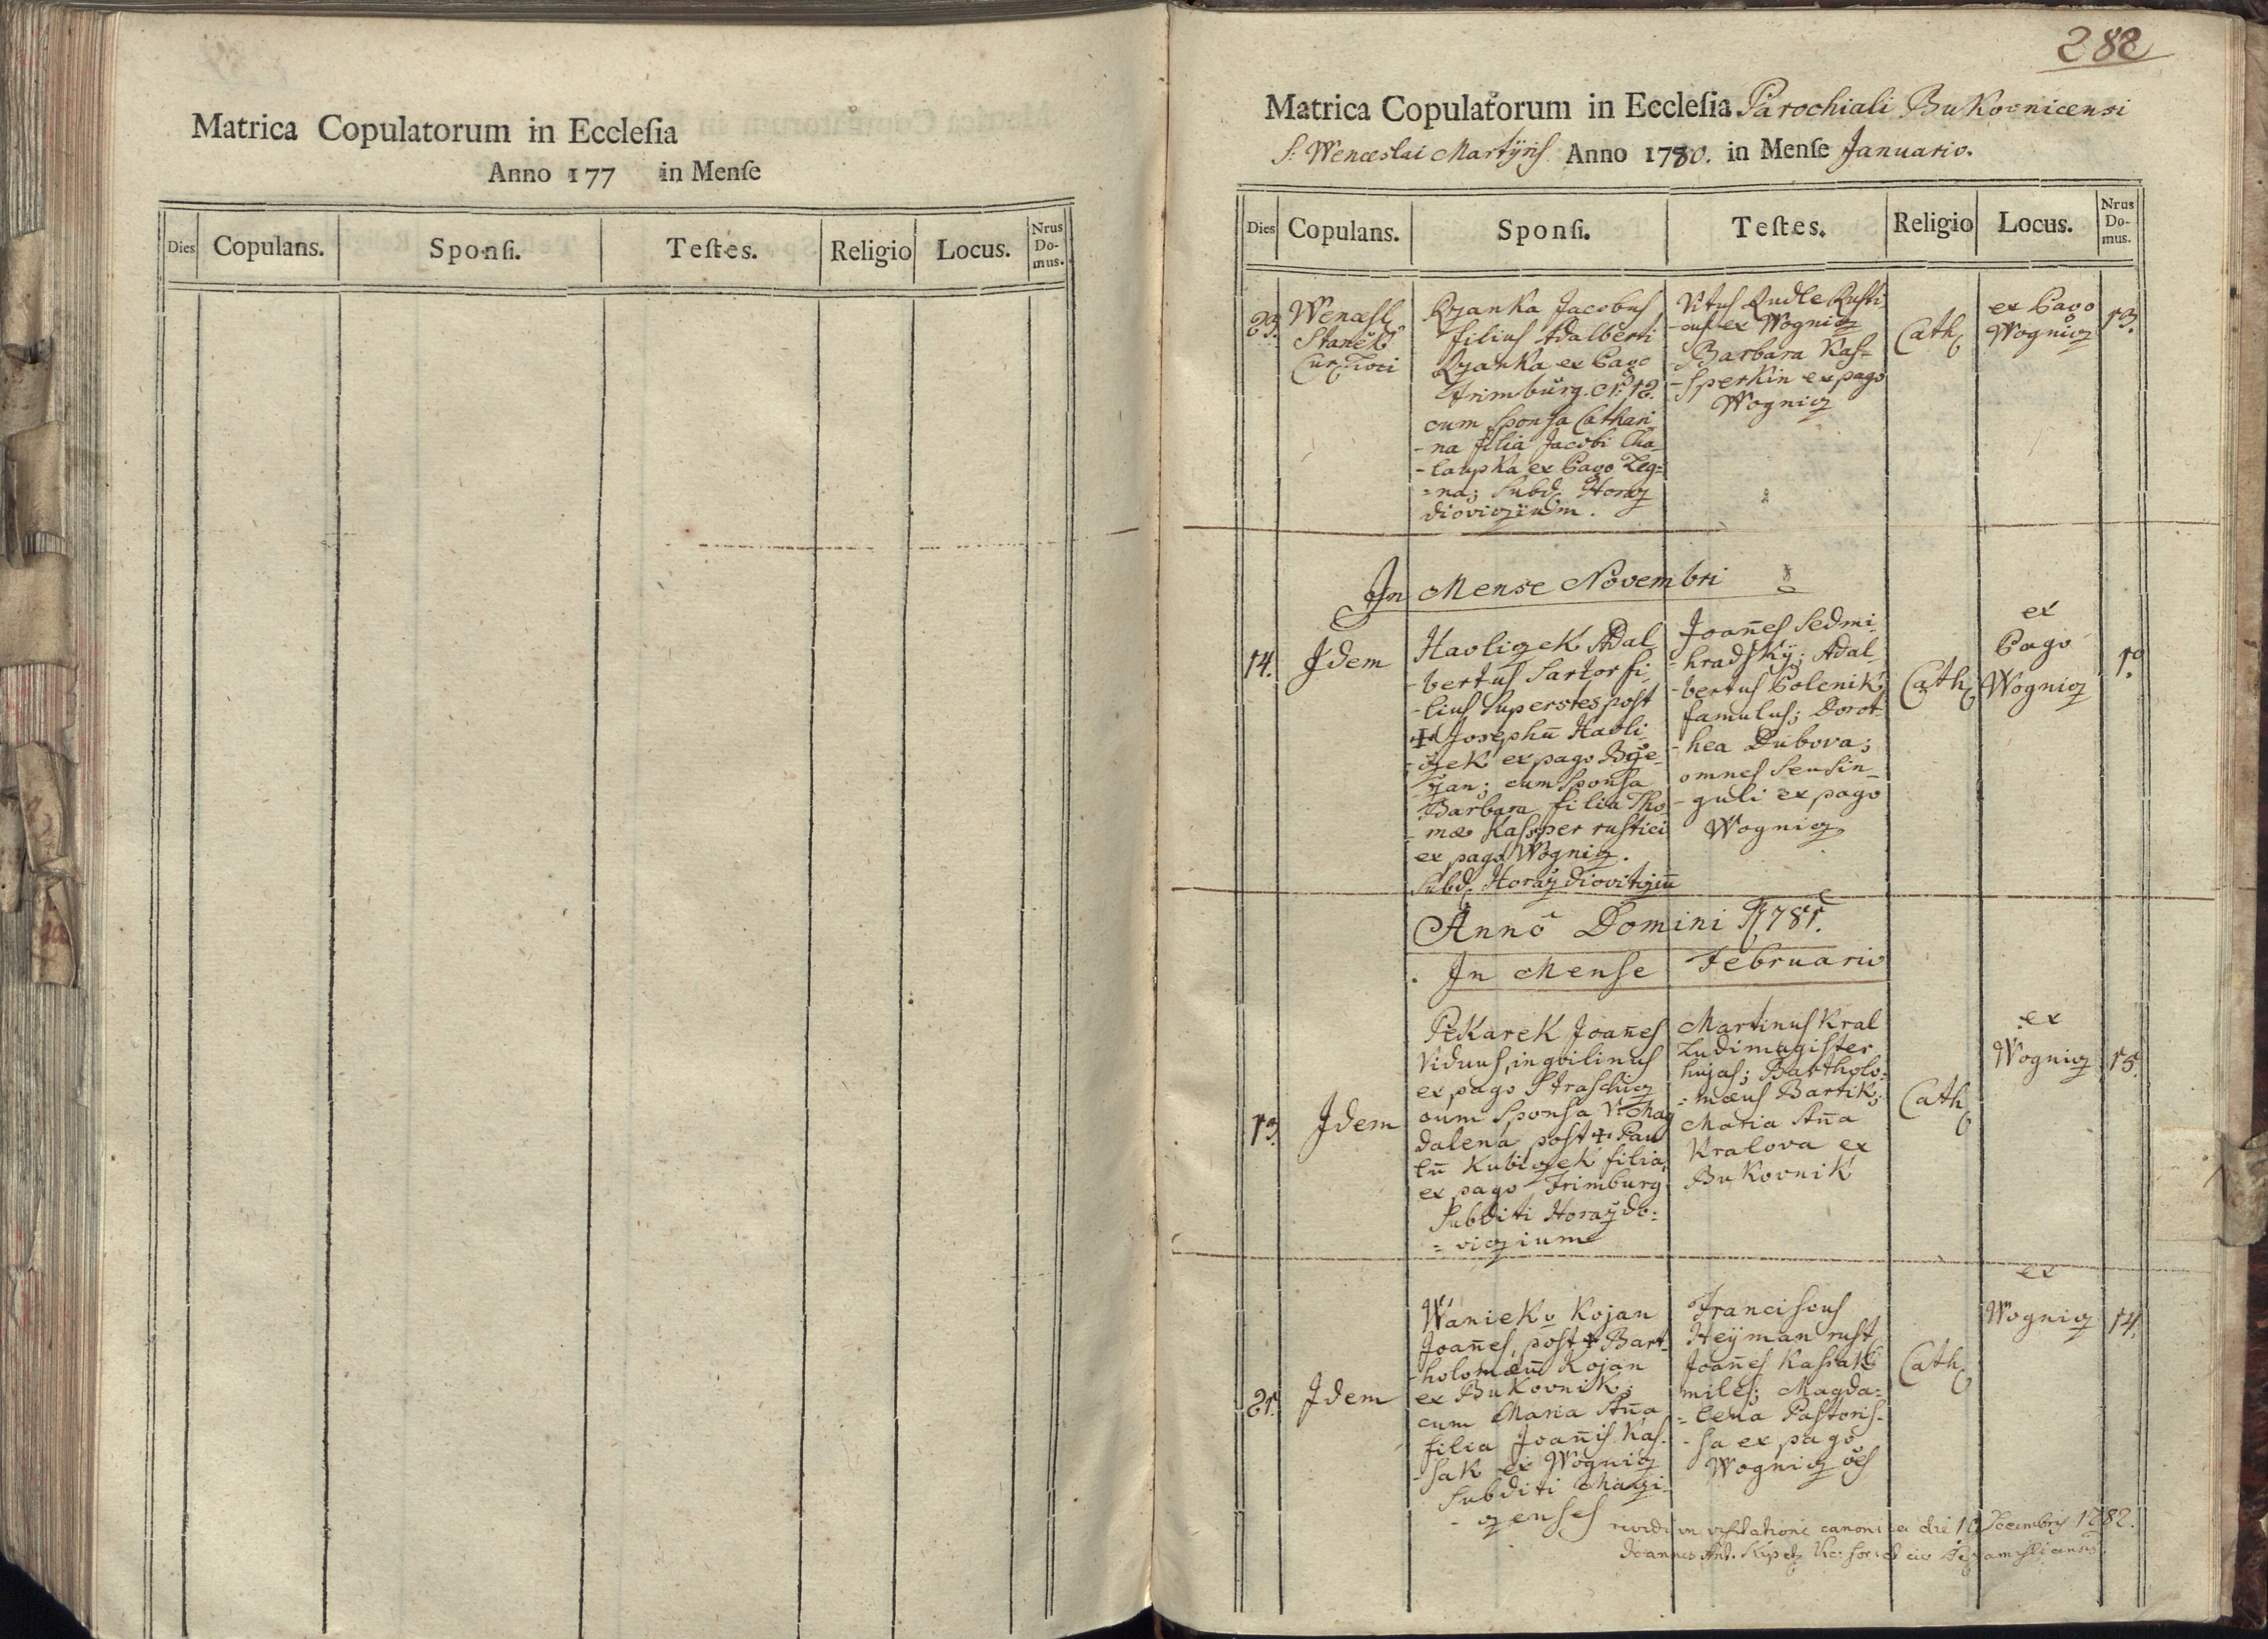 Matrica Copulatorum in Ecclesia
Anno 177 in Mense
Dies Copulans. Sponsi. Testes. Religio Locus. Nrus Domus.
282
Matrica Copulatorum in Ecclesia Parochiali Bukovnicensi
S: Wenceslai Martyris Anno 1780. in Mense Januario.
Dies Copulans. Sponsi. Testes. Religio Locus. Nrus Domus.
23.
Wencesl
Stanek
Cur. Loci
Rzanka Jacobus
filius Adalberti
Rzanka ex Pago
Frimburg. Nr. 12.
cum Sponsa Cathari
-na filia Jacobi Cha-
-laupka ex Pago Leg=
=na; Subd. Horaz
diovicziem.
Vitus Rudle Rusti
-cus ex Wognicz
Barbara Kas-
-sperkin ex pago
Wognicz
Cath
ex Pago
Wognicz
13.
In Mense Novembri
14.
Idem
Havliczek Adal
-bertus Sartor fi-
-lius Superstes post
+ Josephum Havli-
-czek ex pago Brze-
-zan; cum Sponsa
Barbara filia Tho
-mae Kassper rustici
ex pago Wognicz.
Subd. Horazdioviticzium
Joannes Sedmi-
-hradsky; Adal-
-bertus Polenik
famulus; Dorot-
-hea Dubova;
omnes seu sin-
-guli ex pago
Wognicz
Cath
ex
Pago
Wognicz
1.
Anno Domini 1781.
In Mense Februario
13.
Idem
Pekarek Joannes
Viduus, inquilinus
ex pago Straschicz
cum Sponsa V. Mag
dalena post + Pau
lum Kubiczek filia
ex pago Frimburg
Subditi Horazdo:
=vicziume
Martinus Kral
Ludimagister
hujas; Bartholo:
=maeus Bartik;
Maria Anna
Kralova ex
Bukovnik
Cath
ex
Wognicz
15.
21.
Idem
Waniek v Kojan
Joannes, post + Bart-
-holomaeum Kojan
ex Bukovnik;
cum Maria Anna
filia Joannis Kas-
-sak ex Wognicz
Subditi Maczi-
-czenses
Franciscus
Heyman rust
Joannes Kassak
miles; Magda=
=lena Pastoris-
-sa ex pago
Wognicz oes
Cath
ex
Wognicz
14.
revidi in visitatione canonica die 10 Decembris 1782.
Joannes Ant.